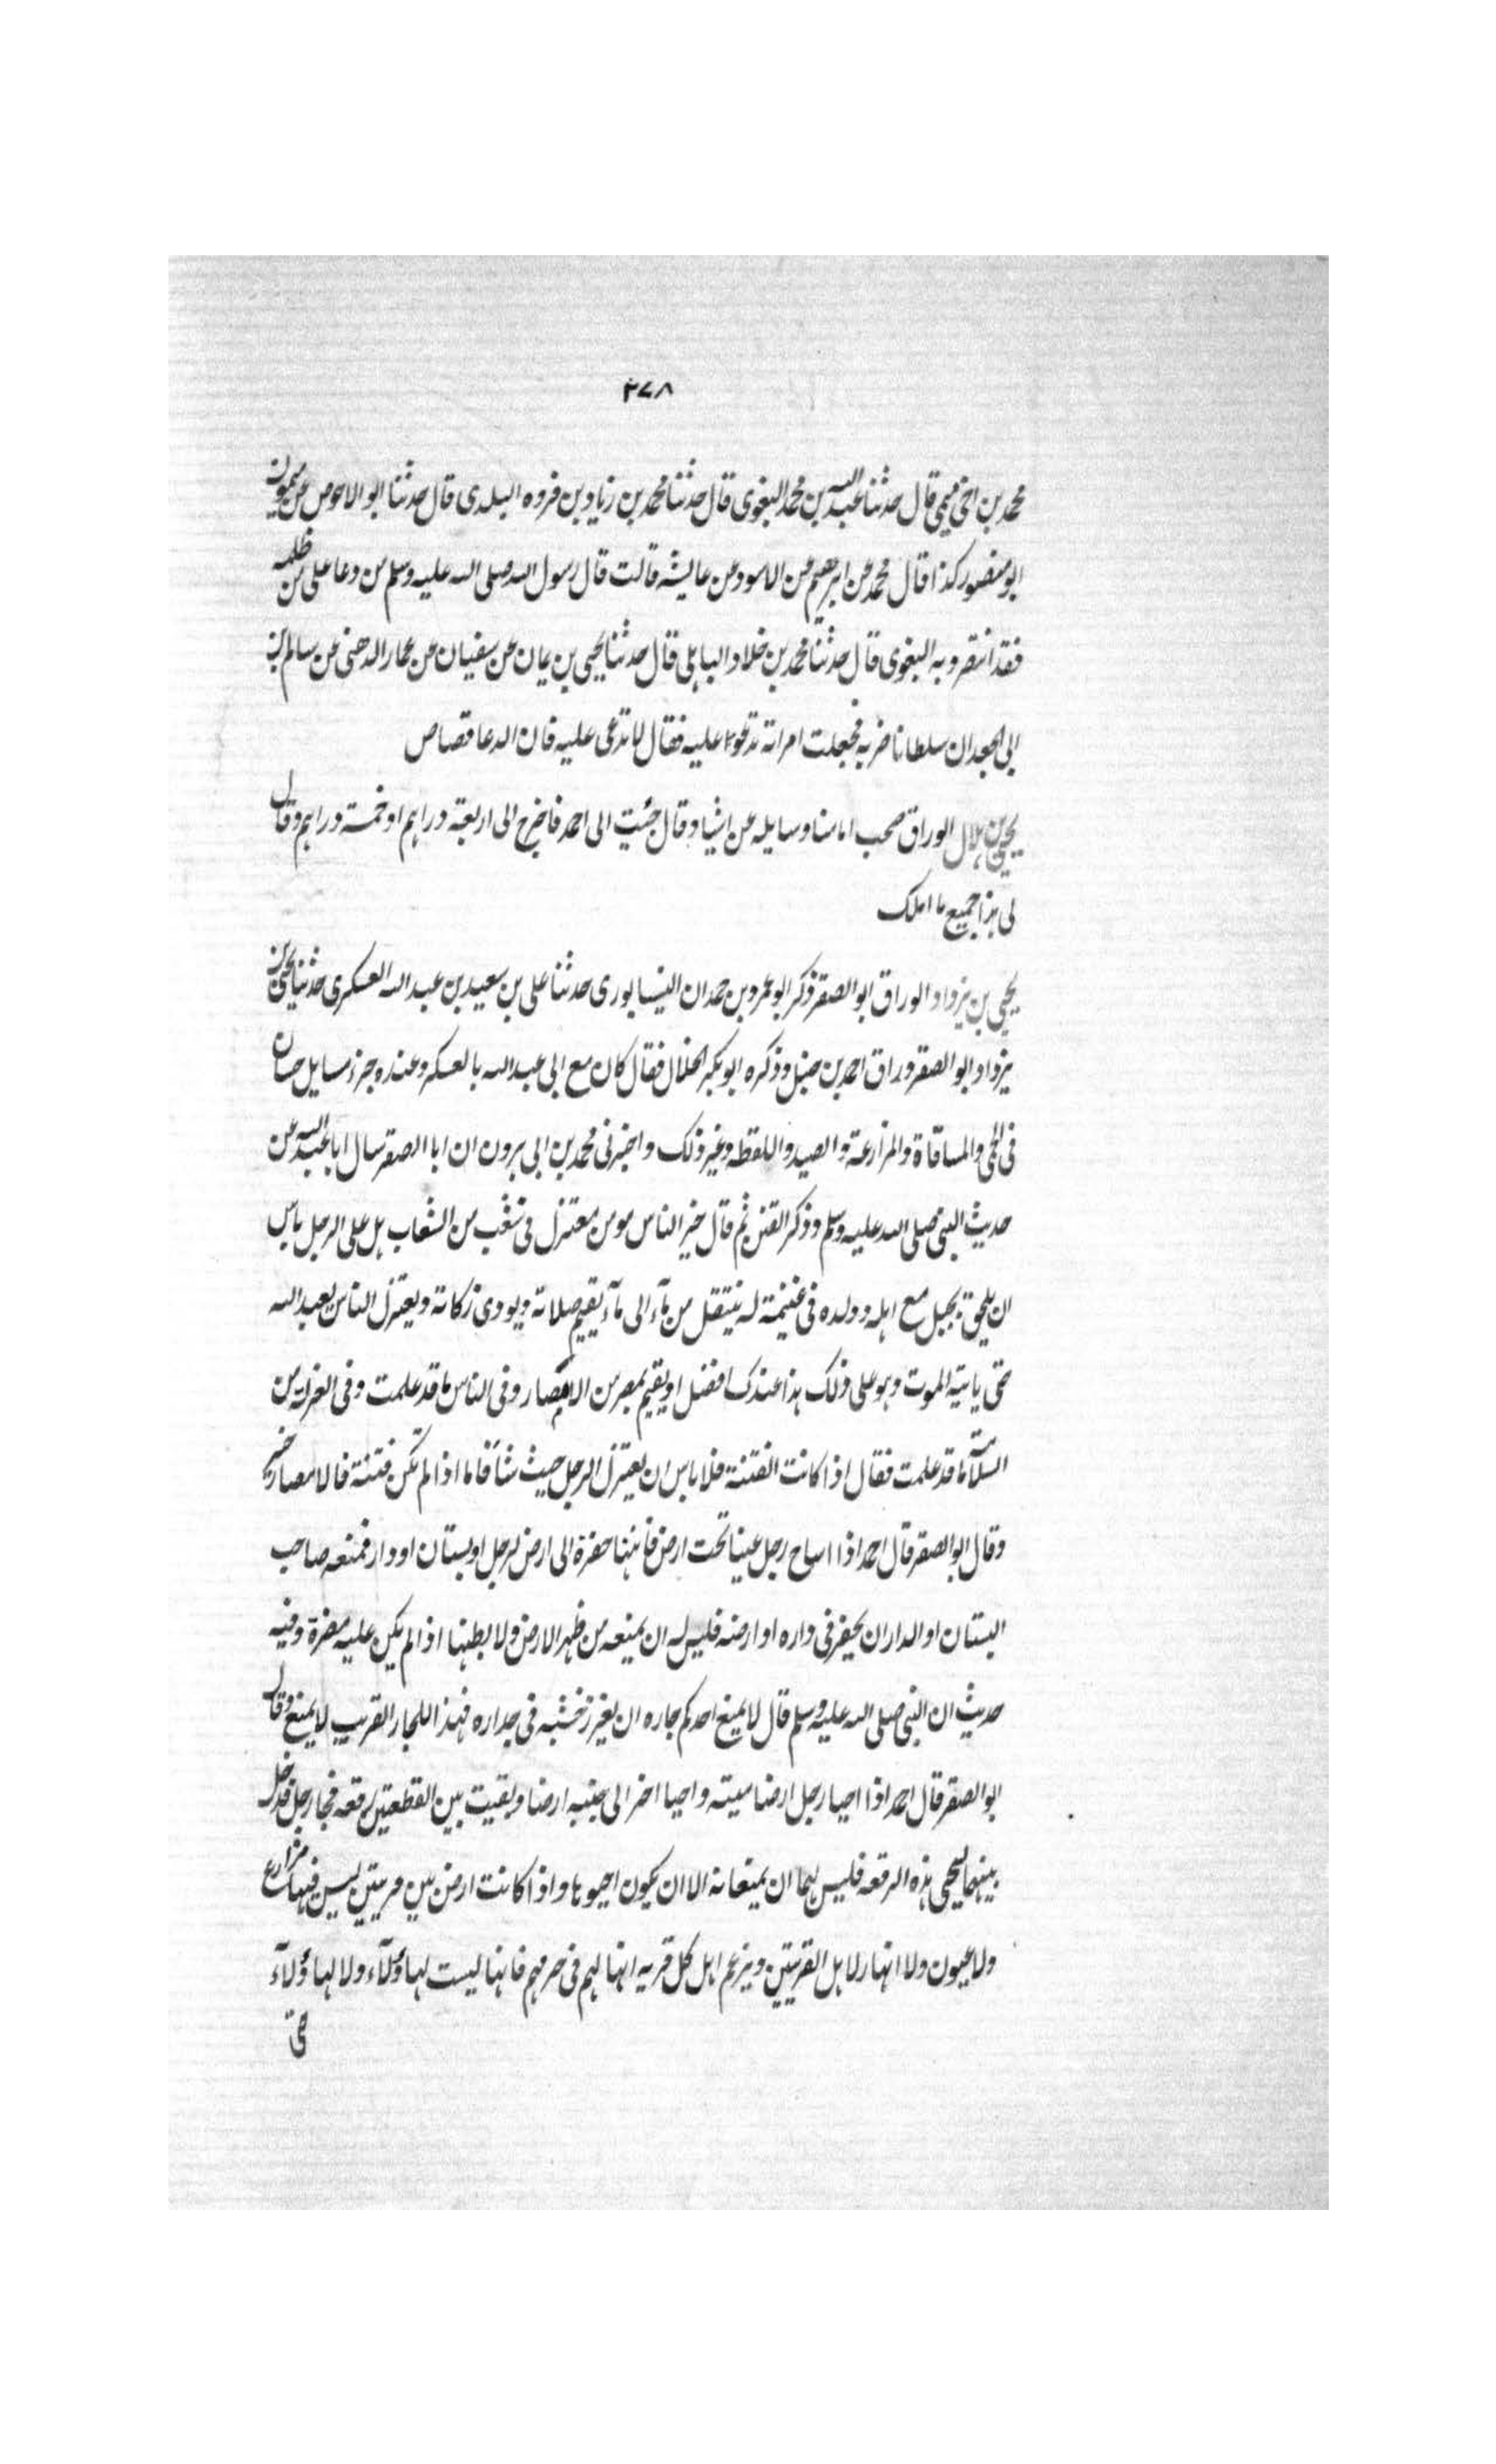 ٣٧٨
محمد بن اخي ميمي قال حدثنا عبد الله بن محمد البغوى قال حدثنا محمد بن زياد بن فروه البلدى قال حدثنا ابو الاحوص عن ميمون
ابو منصور كذا قال محمد عن ابرهيم عن الاسود عن عايشه قالت قال رسول الله صلى الله عليه وسلم من دعا على من ظلمه
فقد انتصر وبه البغوى قال حدثنا محمد بن خلاد الباهلى قال حدثنا يحيى بن يمان عن سفيان عن عمار الدهنى عن سالم بن
ابى الجعد ان سلطانا ضربه فجعلت امراته تدعوا عليه فقال لا تدعى عليه فان الدعا قصاص
يحيى بن هلال الوراق صحب امامنا وسايله عن اشيا وقال جئيت الى احمد فاخرج الى اربعة دراهم او خمسة دراهم وقال
لى هذا جميع ما املك
يحيى بن يزداد الوراق ابو الصقر ذكر ابو عمرو بن حمدان النيسابورى حدثنا على بن سعيد بن عبد الله العسكرى حدثنا يحيى بن
يزداد ابو الصقر وراق احمد بن حنبل وذكره ابو بكر الخلال فقال كان مع ابى عبد الله بالعسكر وعنده جزء مسايل حسان
فى الحمى والمساقاة والمزارعة والصيد واللقطه وغير ذلك واخبرنى محمد بن ابى هرون ان ابا الصقر سال ابا عبد الله عن
حديث النبى صلى الله عليه وسلم وذكر الفتن ثم قال خير الناس مومن معتزل فى شعب من الشعاب هل على الرجل باس
ان يلحق بجبل مع اهله وولده فى غنيمة له ينتقل من مآء الى مآء يقيم صلاته ويودى زكاته ويعتزل الناس يعبد الله
حتى ياتيه الموت وهو على ذلك هذا عندك افضل او يقيم بمصر من الامصار وفى الناس ما قد علمت وفى العزلة من
السلامة ما قد علمت فقال اذا كانت الفتنة فلا باس ان يعتزل الرجل حيث شآ فاما اذا لم تكن فتنة فالامصار خير
وقال ابو الصقر قال احمد اذا اساح رجل عينا تحت ارض فانتها حفرة الى ارض لرجل او بستان او دار فمنعه صاحب
البستان او الدار ان يحفر فى داره او ارضه فليس له ان يمنعه من ظهر الارض ولا بطنها اذا لم يكن عليه مضرة وفيه
حديث ان النبى صلى الله عليه وسلم قال لا يمنع احدكم جاره ان يغرز خشبه فى جداره فهذا للجار القريب لا يمنع وقال
ابو الصقر قال احمد اذا احيا رجل ارضا ميته واحيا اخر الى جنبه ارضا وبقيت بين القطعتين رقعه فجا رجل فدخل
بينهما ليحيى هذه الرقعه فليس لهما ان يمنعانه الا ان يكون احيوها واذا كانت ارض بين قريتين ليس فيها مزارع
ولا عيون ولا انهار لاهل القريتين ويزعم اهل كل قريه انها لهم فى حرمهم فانها ليست لهاؤلآء ولا لهاؤلآء
حتى